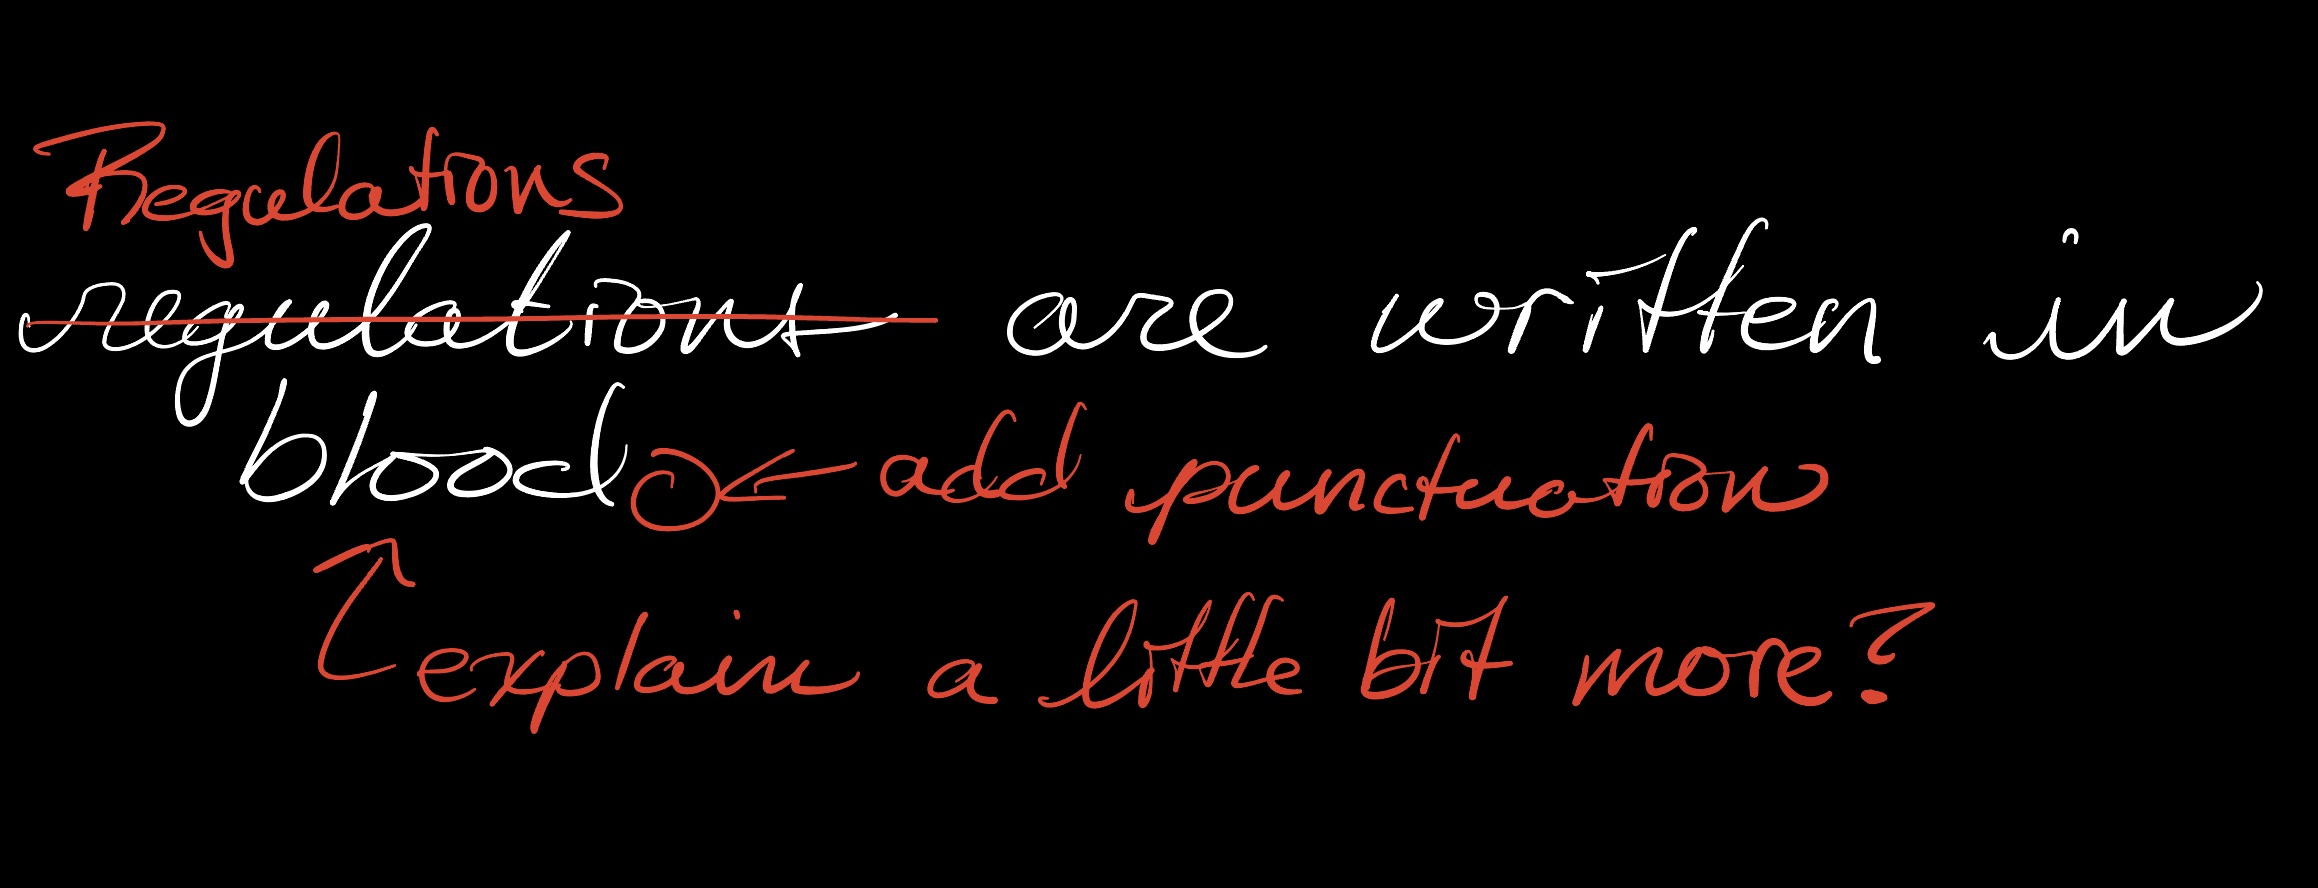 Regulations
regulations are written in
blood add punctuation
explain a little bit more?